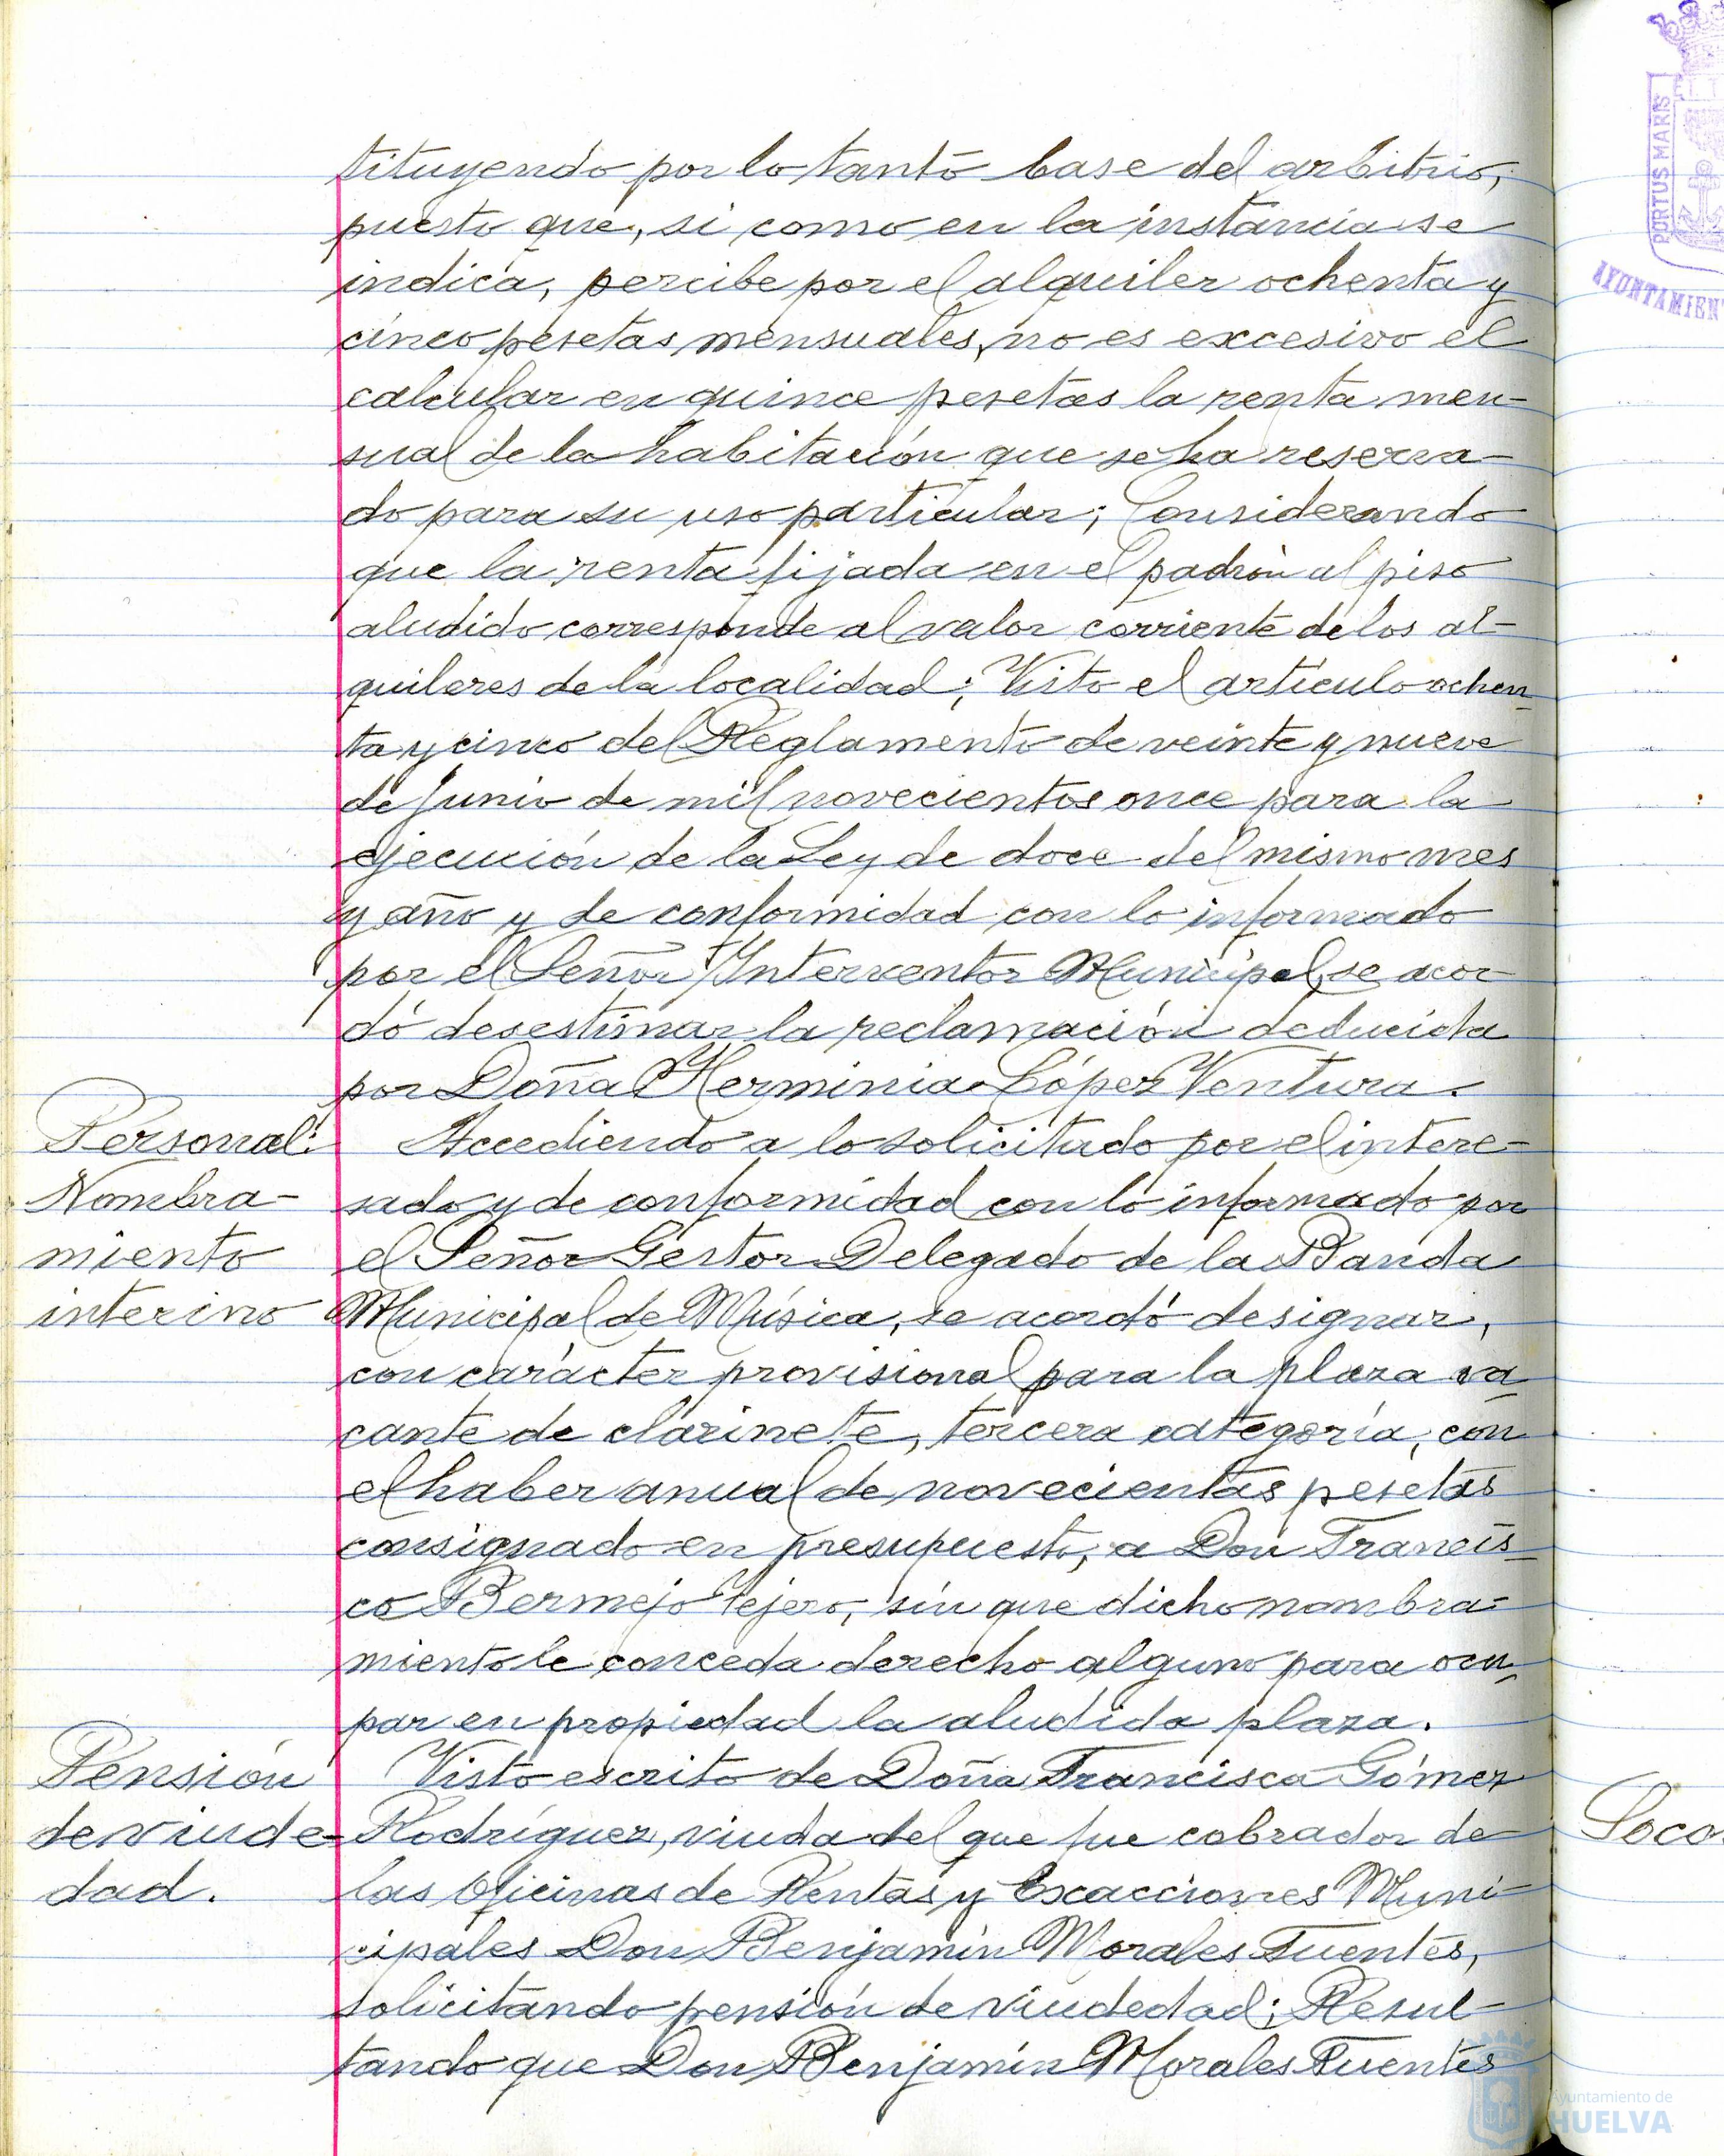 tituyendo por lo tanto base del arbitrio,
puesto que, si como en la instancia se
indica, percibe por el alquiler ochenta y
cinco pesetas mensuales, no es excesivo el
calcular en quince pesetas la renta men-
sual de la habitación que se ha reserva-
do para su uso particular; Considerando
que la renta fijada en el padrón al piso
aludido corresponde al valor corriente de los al-
quileres de la localidad; Visto el artículo ochen-
ta y cinco del Reglamento de veinte y nueve
de Junio de mil novecientos once para la
ejecución de la Ley de doce del mismo mes
y año y de conformidad con lo informado
por el Señor Interventor Municipal, se acor-
dó desestimar la reclamación deducida
por Doña Herminia López Ventura.
Personal:
Nombra-
miento
interino
Accediendo a lo solicitado por el intere-
sado y de conformidad con lo informado por
el Señor Gestor Delegado de la Banda
Municipal de Música, se acordó designar,
con carácter provisional para la plaza va-
cante de clarinete, tercera categoría, con
el haber anual de novecientas pesetas
consignado en presupuesto, a Don Francis-
co Bermejo Tejero, sin que dicho nombra-
miento le conceda derecho alguno para ocu-
par en propiedad la aludida plaza.
Pensión
de viude-
dad.
Visto escrito de Doña Francisca Gómez
Rodríguez, viuda del que fue cobrador de
las Oficinas de Rentas y Exacciones Muni-
cipales Don Benjamín Morales Fuentes,
solicitando pensión de viudedad; Resul-
tando que Don Benjamín Morales Fuentes
PORTUS MARIS
AYUNTAMIEN
Soco
Ayuntamiento de
HUELVA